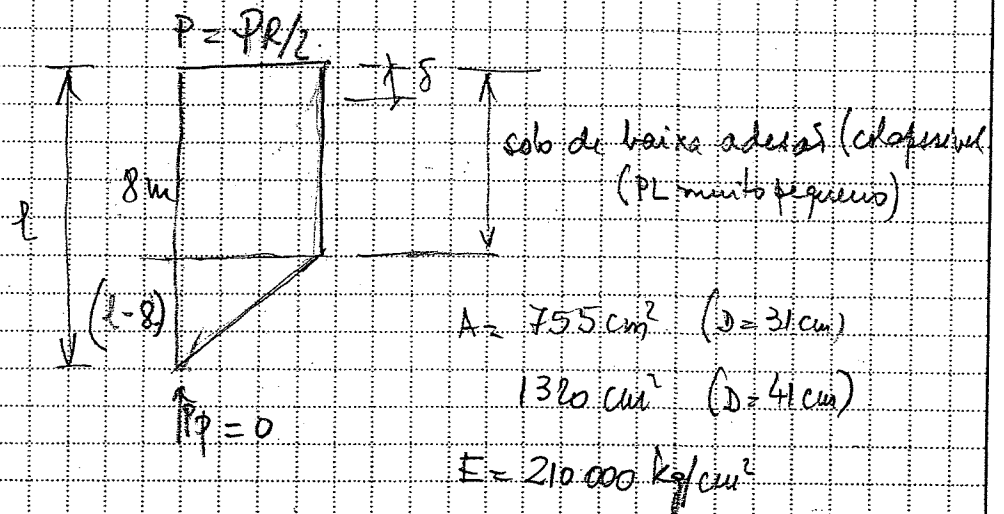 P = PR/2.
δ
solo de baixa adesão (colapsível
(PL muito pequeno)
8m
l
(l-8)
A = 755 cm² (D = 31 cm)
1320 cm² (D = 41 cm)
Pp = 0
E = 210 000 kg/cm²